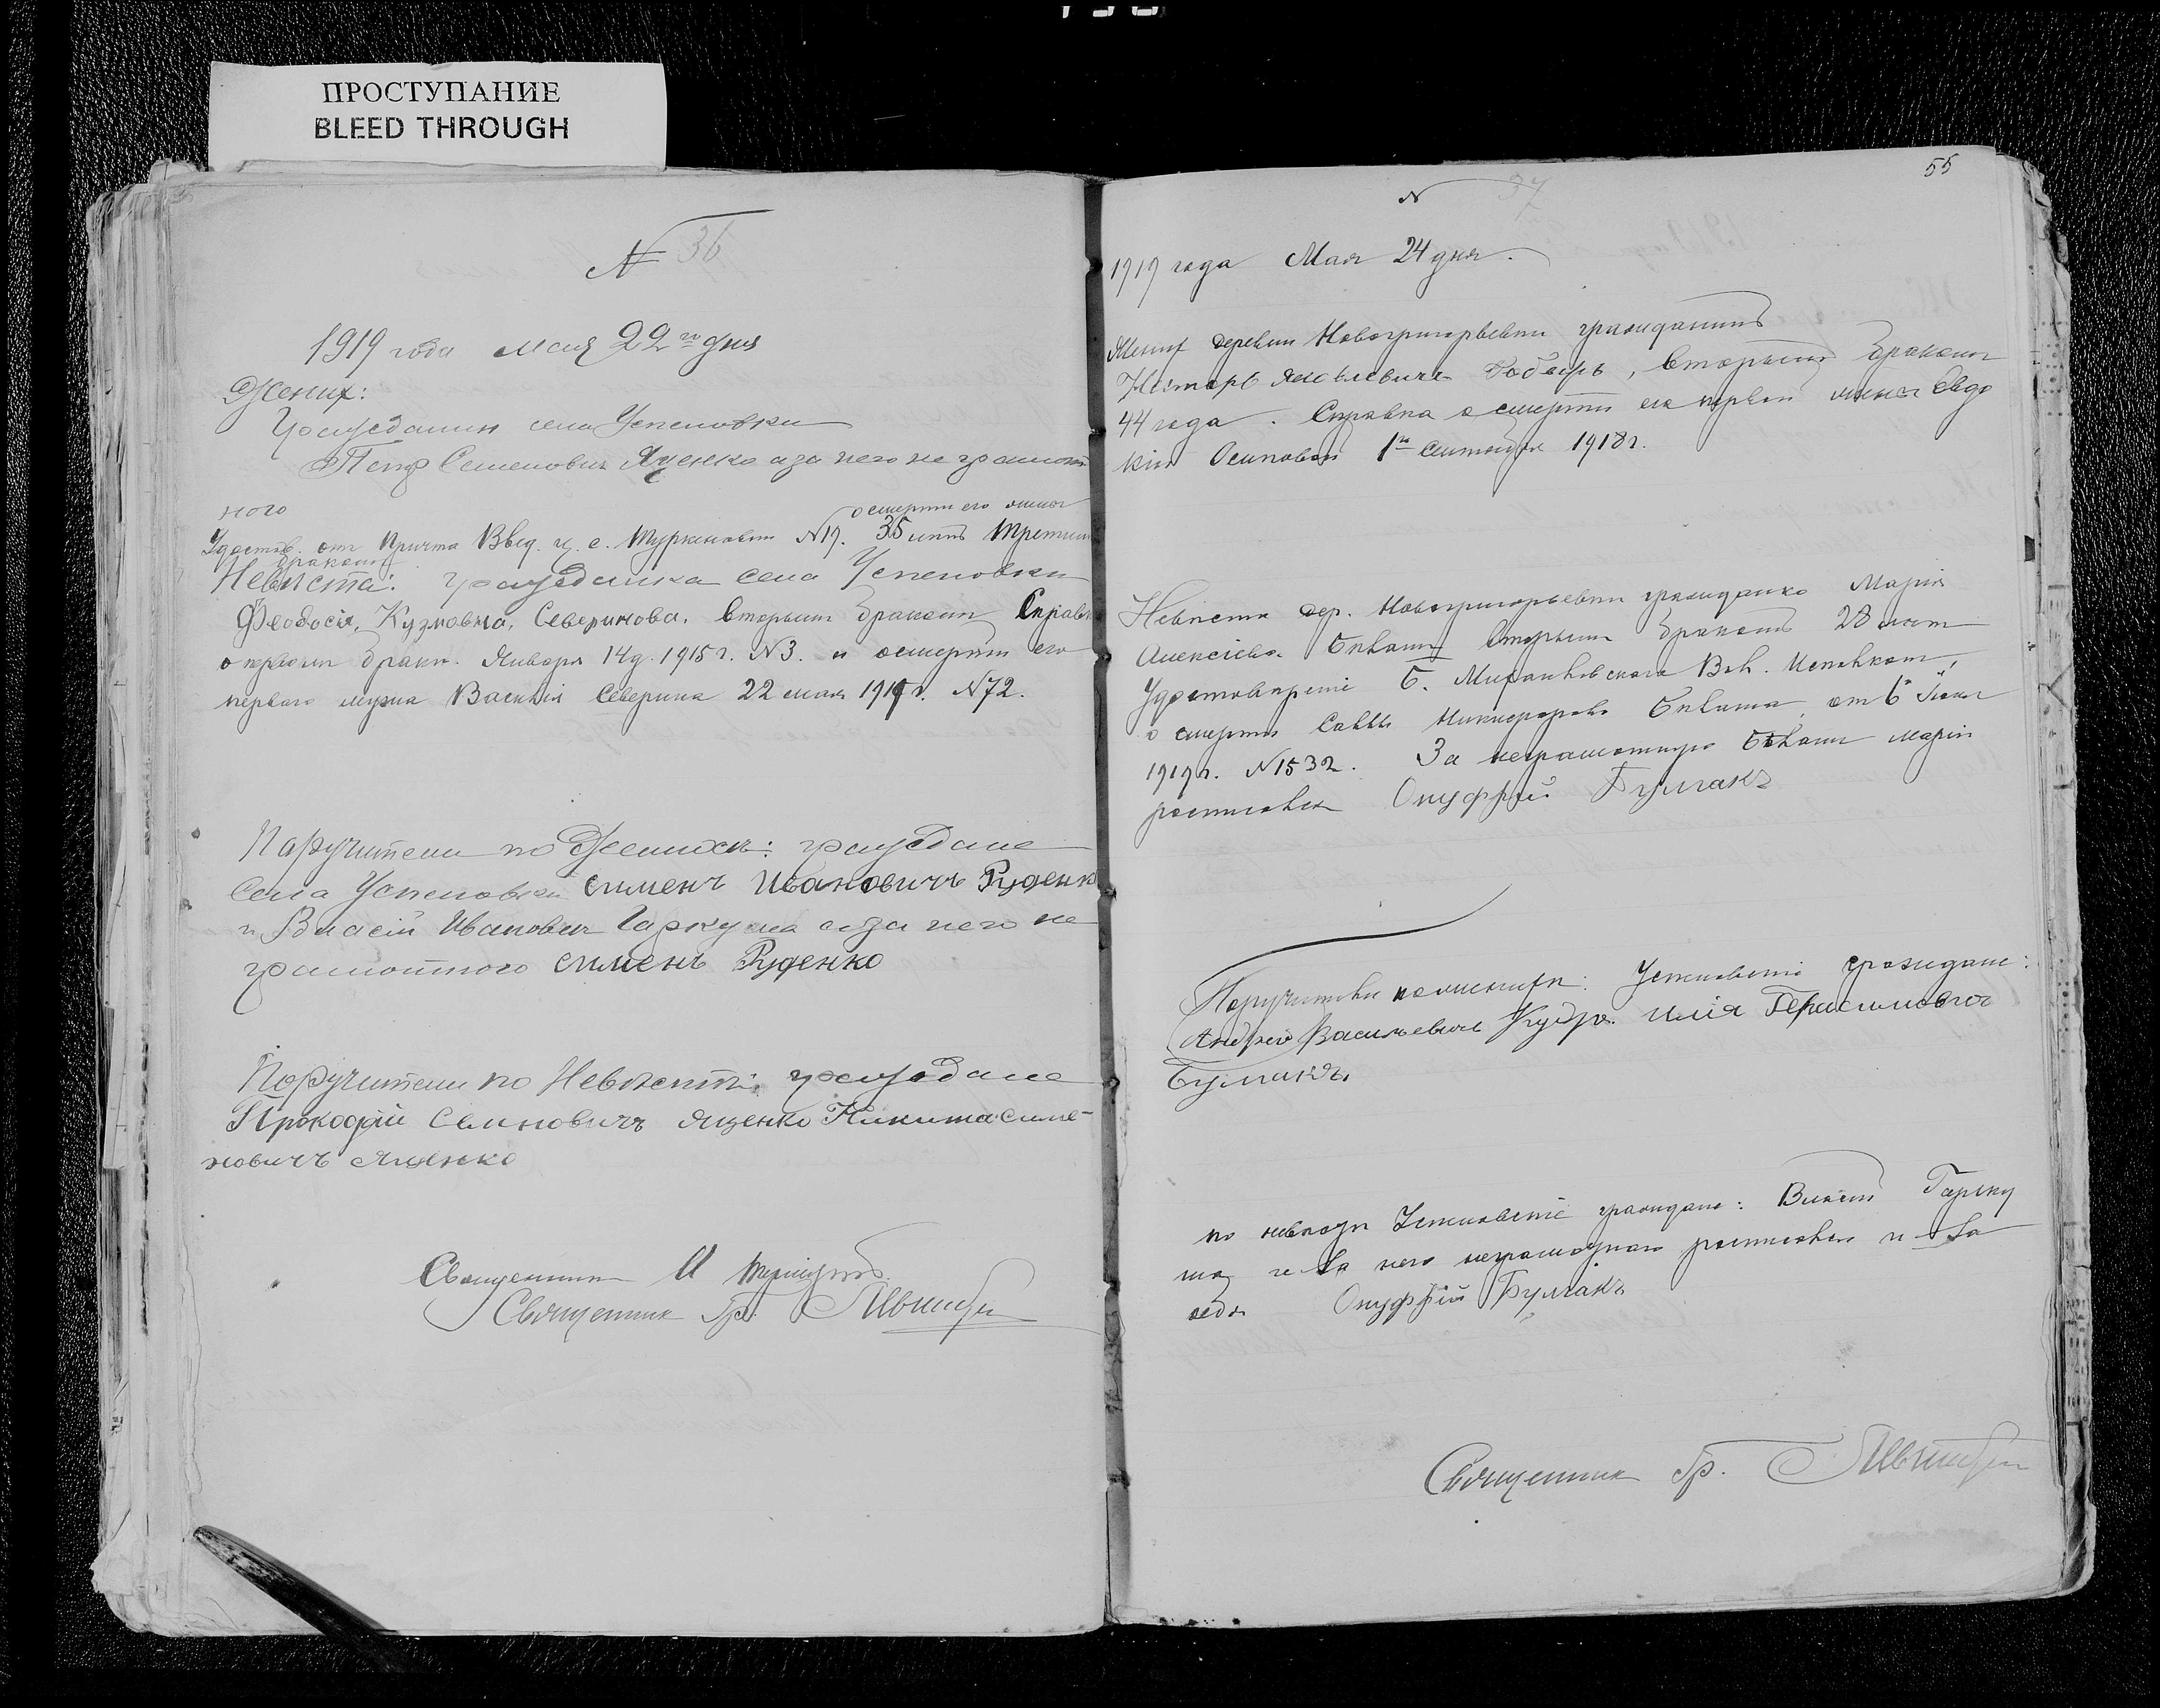 ПРОСТУПАНИЕ
BLEED THROUGH
№ 36
1919 года мая 22го дня
Жених:
Гражданин села Успеновки
Петр Семенович Яценко а за него не грамот
ного
о смерти его жены
Удостов. от причта Введ. ц. с. №17. 35 летъ третим
бракомъ
Невеста: гражданка села Успеновки
Феодосія, Кузмовна, Северинова. вторым браком Справка
о первом браке. Января 14 д. 1915 г. №3. и о смерти его
первого мужа Василія Северина 22 мая 191 г. №72.
Паручители по Женихе: граждане
Села Успеновки Сименъ Ивановичъ Руденк
и Власій Иванович Гаркуша а за него не
грамотного Сименъ Руденко
Поручители по Невесте: граждане
Прокофій Семновичъ Яценко Никита Симе-
новичъ Яценко
Священник И
Священник Гр.
55
№ 37
1919 года Мая 24 дня.
Жених деревни Новогригорьевки гражданинъ
Несторъ Яковлевичъ , вторымъ браком
44 года. Справка о смерти его первой жены Евдо
кіи Осиповой 1го Сентября 1918 г.
Невеста дер. Новогригорьевки гражданка Марія
Алексіева вторым бракомъ 28 лет
Удостовереніе Б. Вол. Исполком,
о смерти Саввы Никифорова от 6
1919 г. №1532. За неграмотную Маріи
росписался Онуфрій Булгакъ
Поручители по женихе: Успеновскіе граждане:
Андрей Васильевичъ Кудра. Илія Герасимович
Булгакъ.
по невесте Успеновскіе граждане: Власій Гарку
ша и за него неграмотнаго росписался и за
себя Онуфрій Булгакъ
Священник Гр.